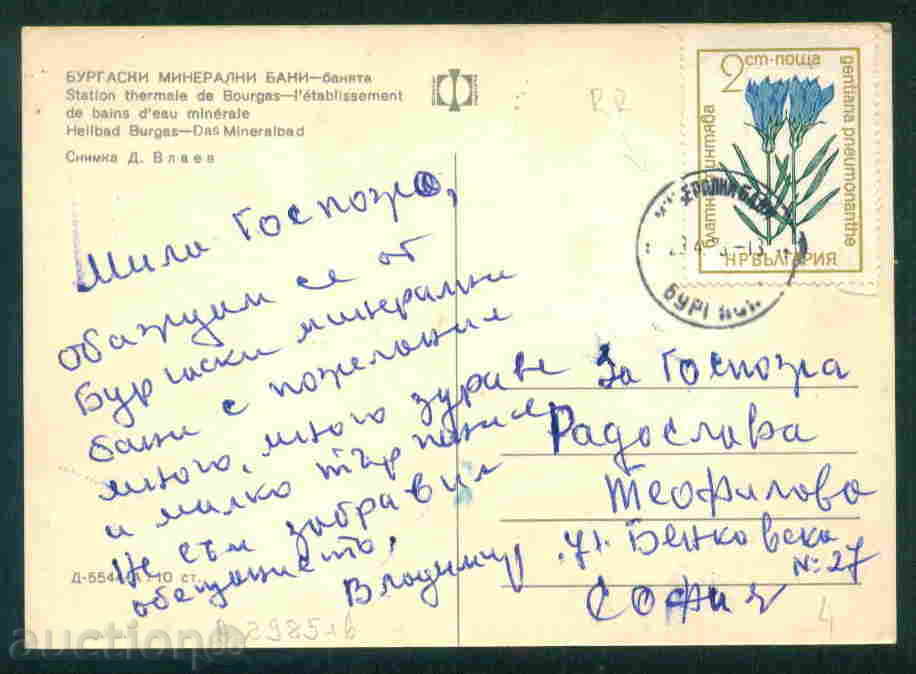 БУРГАСКИ МИНЕРАЛНИ БАНИ—банята
Station thermale de Bourgas—l'établissement
de bains d'eau minérale
Heilbad Burgas—Das Mineralbad
Снимка Д. Влаев
2 ст·поща
gentiana pneumonanthe
блатна тинтява
НР БЪЛГАРИЯ
Мила Госпожо,
обаждим се от
Бургаски минерални
бани с пожелания
много, много здраве
и малко търпение
Не съм забравил
обещанието,
Владимир
За Госпожа
Радослава
Теофилова
ул. Бенковска
№: 27
София
10 ст.
4
auction.bg